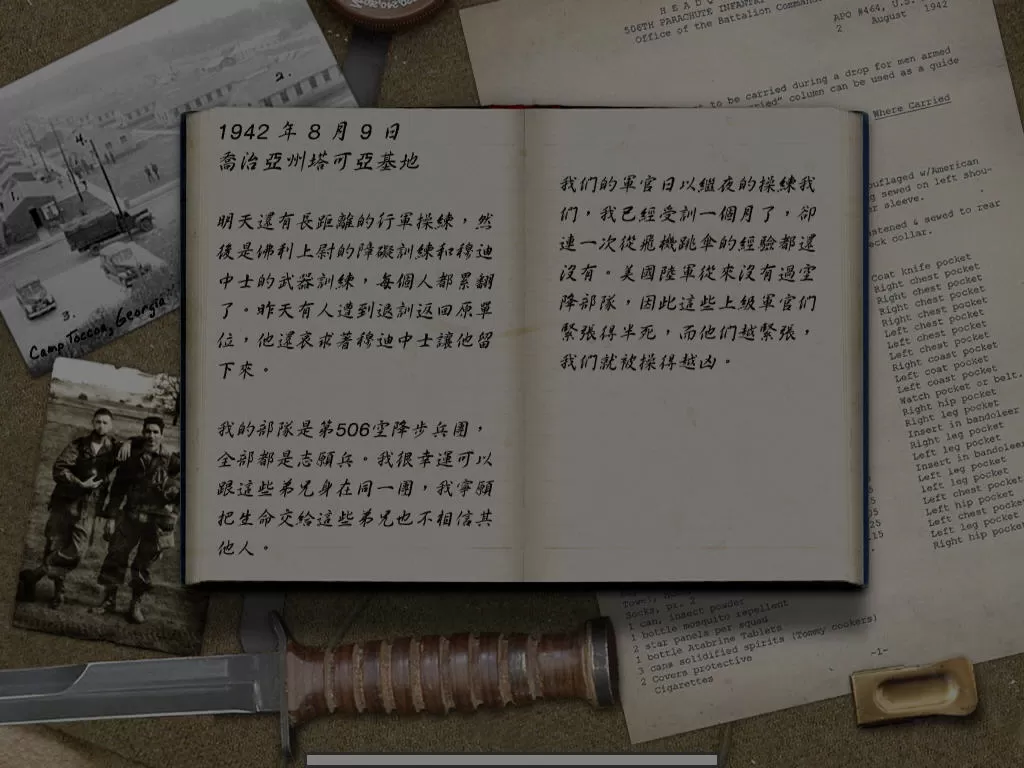 2.
4.
3.
Camp Toccoa, Georgia
506TH PARACHUTE INFANTRY
Office of the Battalion Comman
APO #464, U.S.
2 August 1942
to be carried during a drop for men armed
column can be used as a guide
Where Carried
ouflaged w/American
g sewed on left shou-
er sleeve.
stened & sewed to rear
eck collar.
Coat knife pocket
Right chest pocket
Right chest pocket
Right chest pocket
Left chest pocket
Left chest pocket
Left chest pocket
Right coat pocket
Left coat pocket
Left coast pocket
Watch pocket or belt.
Right hip pocket
Right leg pocket
Insert in bandoleer
Right leg pocket
Insert in bandoleer
Left leg pocket
left leg pocket
Left chest pocket
Left hip pocket
Left chest pocket
Left leg pocket
Right hip pocket
1942 年 8 月 9 日
喬治亞州塔可亞基地
明天還有長距離的行軍操練，然
後是佛利上尉的障礙訓練和穆迪
中士的武器訓練，每個人都累翻
了。昨天有人遭到退訓返回原單
位，他還哀求著穆迪中士讓他留
下來。
我的部隊是第506空降步兵團，
全部都是志願兵。我很幸運可以
跟這些弟兄身在同一團，我寧願
把生命交給這些弟兄也不相信其
他人。
我们的軍官日以繼夜的操練我
们，我已經受訓一個月了，卻
連一次從飛機跳傘的經驗都還
沒有。美國陸軍從來沒有過空
降部隊，因此這些上級軍官们
緊張得半死，而他们越緊張，
我们就被操得越凶。
Socks, pr. 2
1 can, insect powder
1 bottle mosquito repellent
2 star panels per squad
1 bottle Atabrine Tablets
3 cans solidified spirits (Tommy cookers)
2 Covers protective
Cigarettes
-1-